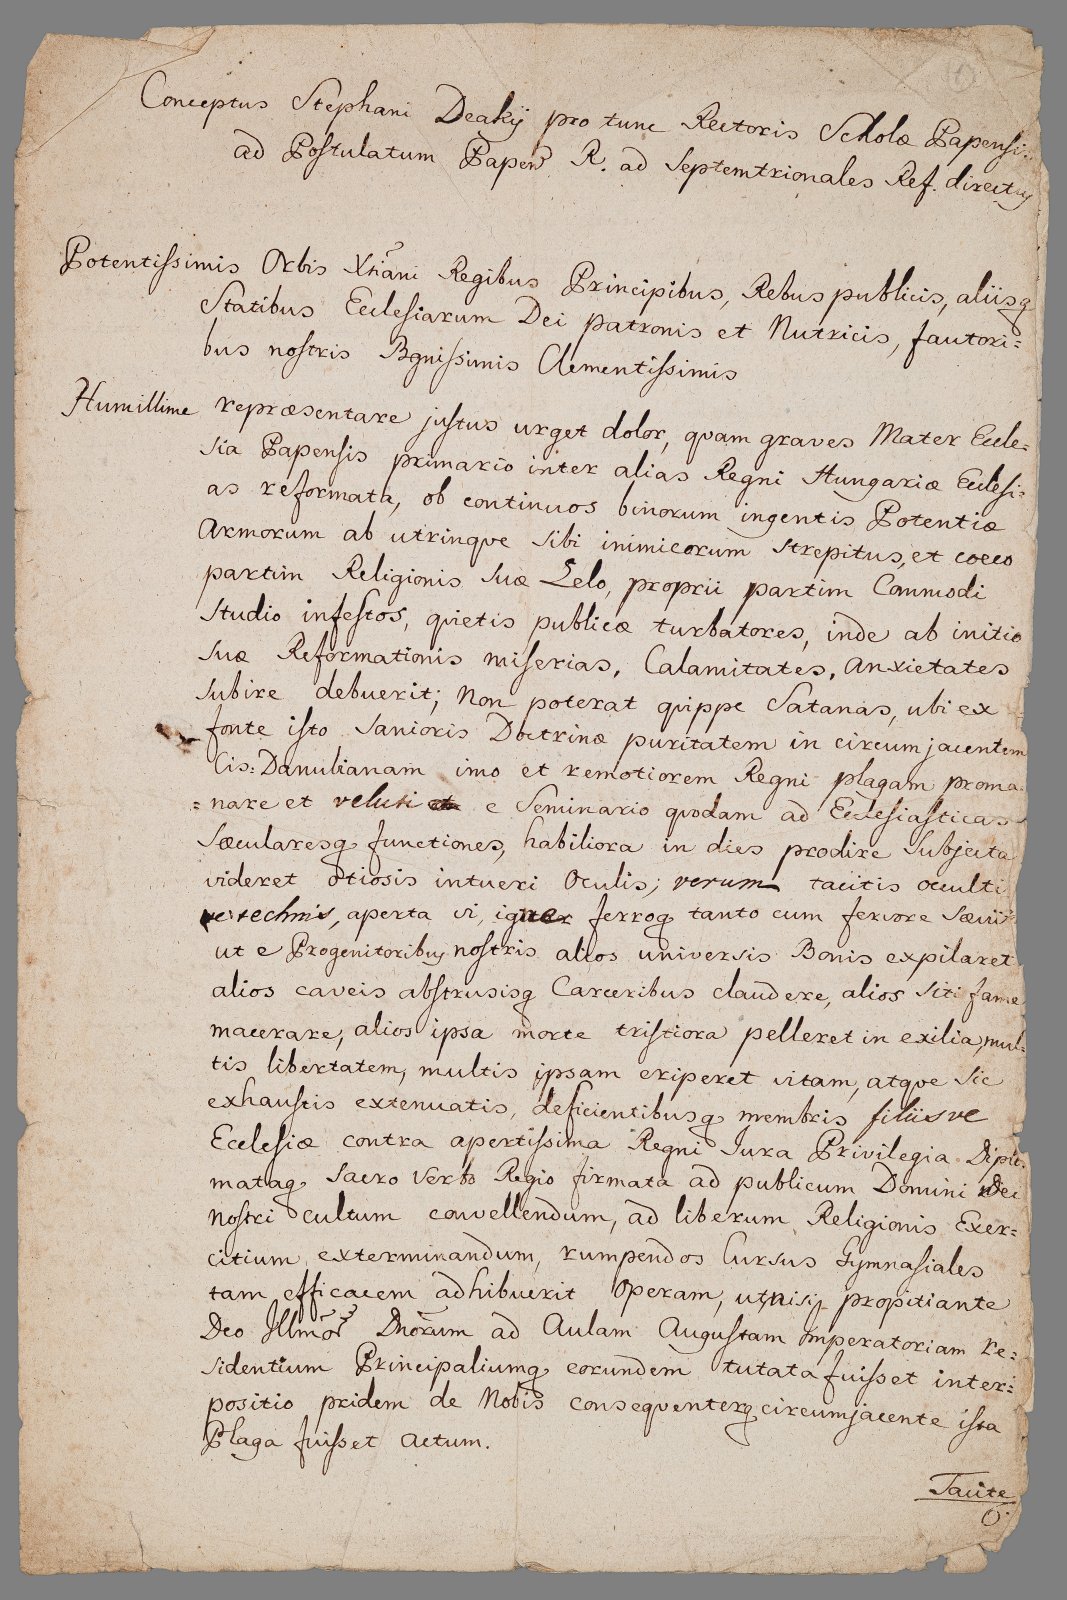 Conceptus Stephani Deakij pro tunc Rectoris Scholæ Papensi:
ad Postulatum Papens R. ad Septemtrionales Ref. directus
Potentissimis Orbis Xtiani Regibus Principibus, Rebus publicis, aliisq
Statibus Ecclesiarum Dei patronis et Nutricis, fautori=
bus nostris Bgnissimis Clementissimis
Humillime repræsentare justus urget dolor, quam graves Mater Eccle=
sia Papensis primario inter alias Regni Hungariæ Ecclesi=
as reformata, ob continuos binorum ingentis Potentiæ
Armorum ab utrinqve sibi inimicorum strepitus, et coeco
partim Religionis suæ Zelo, proprii partim Commodi
studio infestos, qvietis publicæ turbatores, inde ab initio
suæ Reformationis miserias, Calamitates, Anxietates
subire debuerit; Non poterat qvippe Satanas, ubi ex
fonte isto Sanioris Doctrinæ puritatem in circumjacentem
Cis=Danubianam imo et remotiorem Regni plagam proma=
=nare et veluti e Seminario qvodam ad Ecclesiasticas
Sæcularesq functiones, habiliora in dies prodire Subjecta
videret otiosis intueri Oculis; verum tacitis occulti
ve technis, aperta vi, igne ferroq tanto cum fervore Sæviit
ut e Progenitoribus nostris alios universis Bonis expilaret
alios caveis abstrusisq Carceribus claudere, alios siti fame
macerare, alios ipsa morte tristiora pelleret in exilia, mul=
tis libertatem, multis ipsam eriperet vitam, atqve sic
exhaustis extenuatis, deficientibusq membris filiisve
Ecclesiæ contra apertissima Regni Jura Privilegia Diplo=
mataq sacro verbo Regio firmata ad publicum Domini Dei
Nostri cultum convellendum, ad liberum Religionis Exer=
citium exterminandum, rumpendos Cursus Gymnasiales
tam efficacem adhibuerit Operam, ut nisi propitiante
Deo Illmor Dnorum ad Aulam Augustam Imperatoriam re=
sidentium Principaliumq eorundem tutata fuisset inter=
positio pridem de Nobis conseqventerq circumjacente ista
Plaga fuisset actum.
Tacite